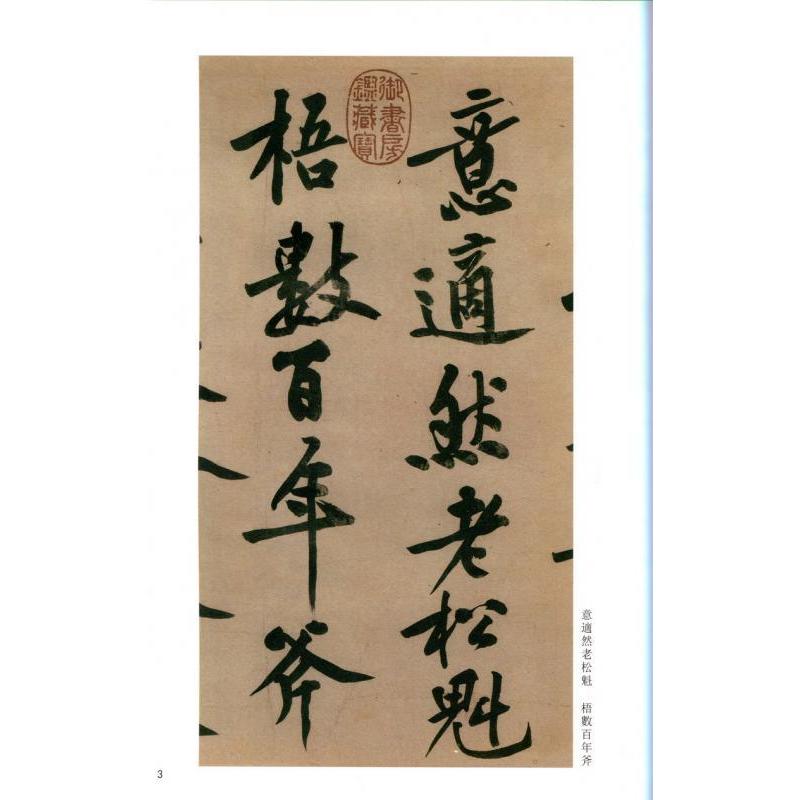 意適然老松魁
梧數百年斧
御書房
鑑藏寶
意適然老松魁 梧數百年斧
3